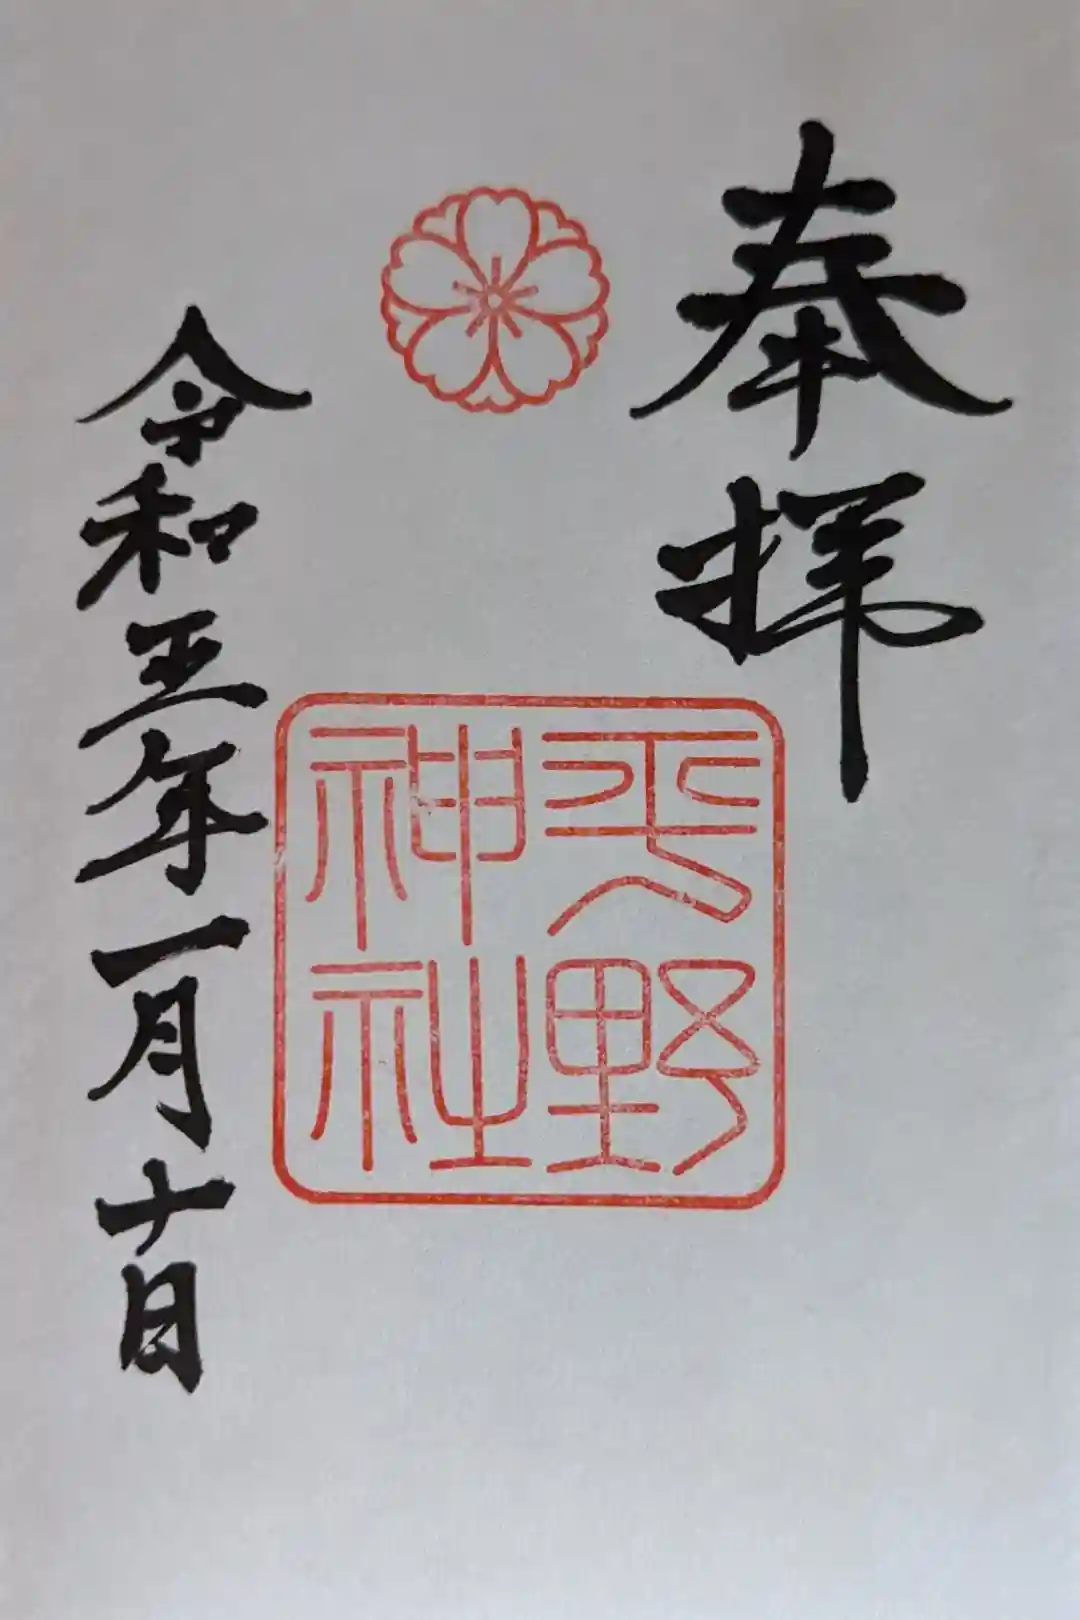 奉拝
平野神社
令和五年一月十日